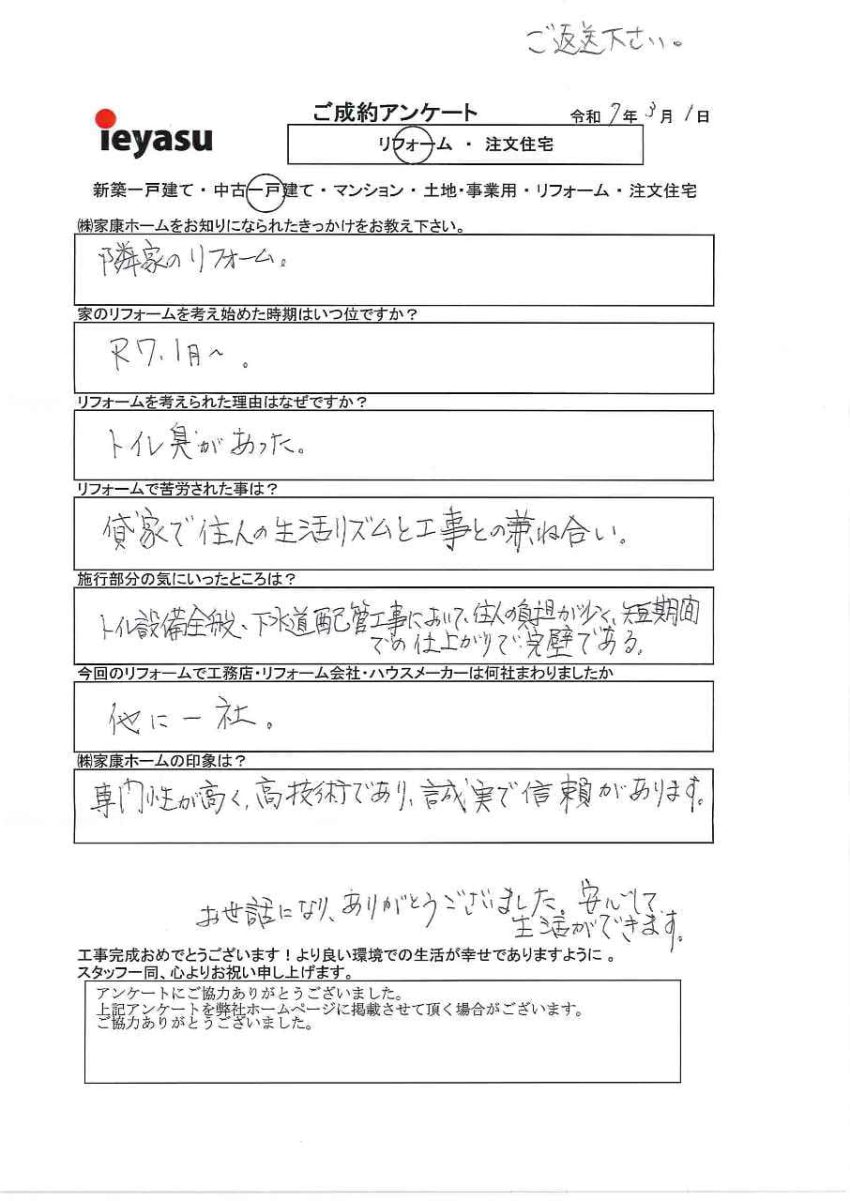 ご返送下さい。
ieyasu
ご成約アンケート
令和7年3月1日
リフォーム ・ 注文住宅
新築一戸建て・中古一戸建て・マンション・土地・事業用・リフォーム・注文住宅
㈱家康ホームをお知りになられたきっかけをお教え下さい。
隣家のリフォーム。
家のリフォームを考え始めた時期はいつ位ですか？
R7.1月～。
リフォームを考えられた理由はなぜですか？
トイレ臭があった。
リフォームで苦労された事は？
貸家で住人の生活リズムと工事との兼ね合い。
施行部分の気にいったところは？
トイレ設備全般、下水道配管工事において、住人の負担が少く、短期間
での仕上がりで完璧である。
今回のリフォームで工務店・リフォーム会社・ハウスメーカーは何社まわりましたか
他に一社。
㈱家康ホームの印象は？
専門性が高く、高技術であり、誠実で信頼があります。
お世話になり、ありがとうございました。安心して
生活ができます。
工事完成おめでとうございます！より良い環境での生活が幸せでありますように 。
スタッフ一同、心よりお祝い申し上げます。
アンケートにご協力ありがとうございました。
上記アンケートを弊社ホームページに掲載させて頂く場合がございます。
ご協力ありがとうございました。